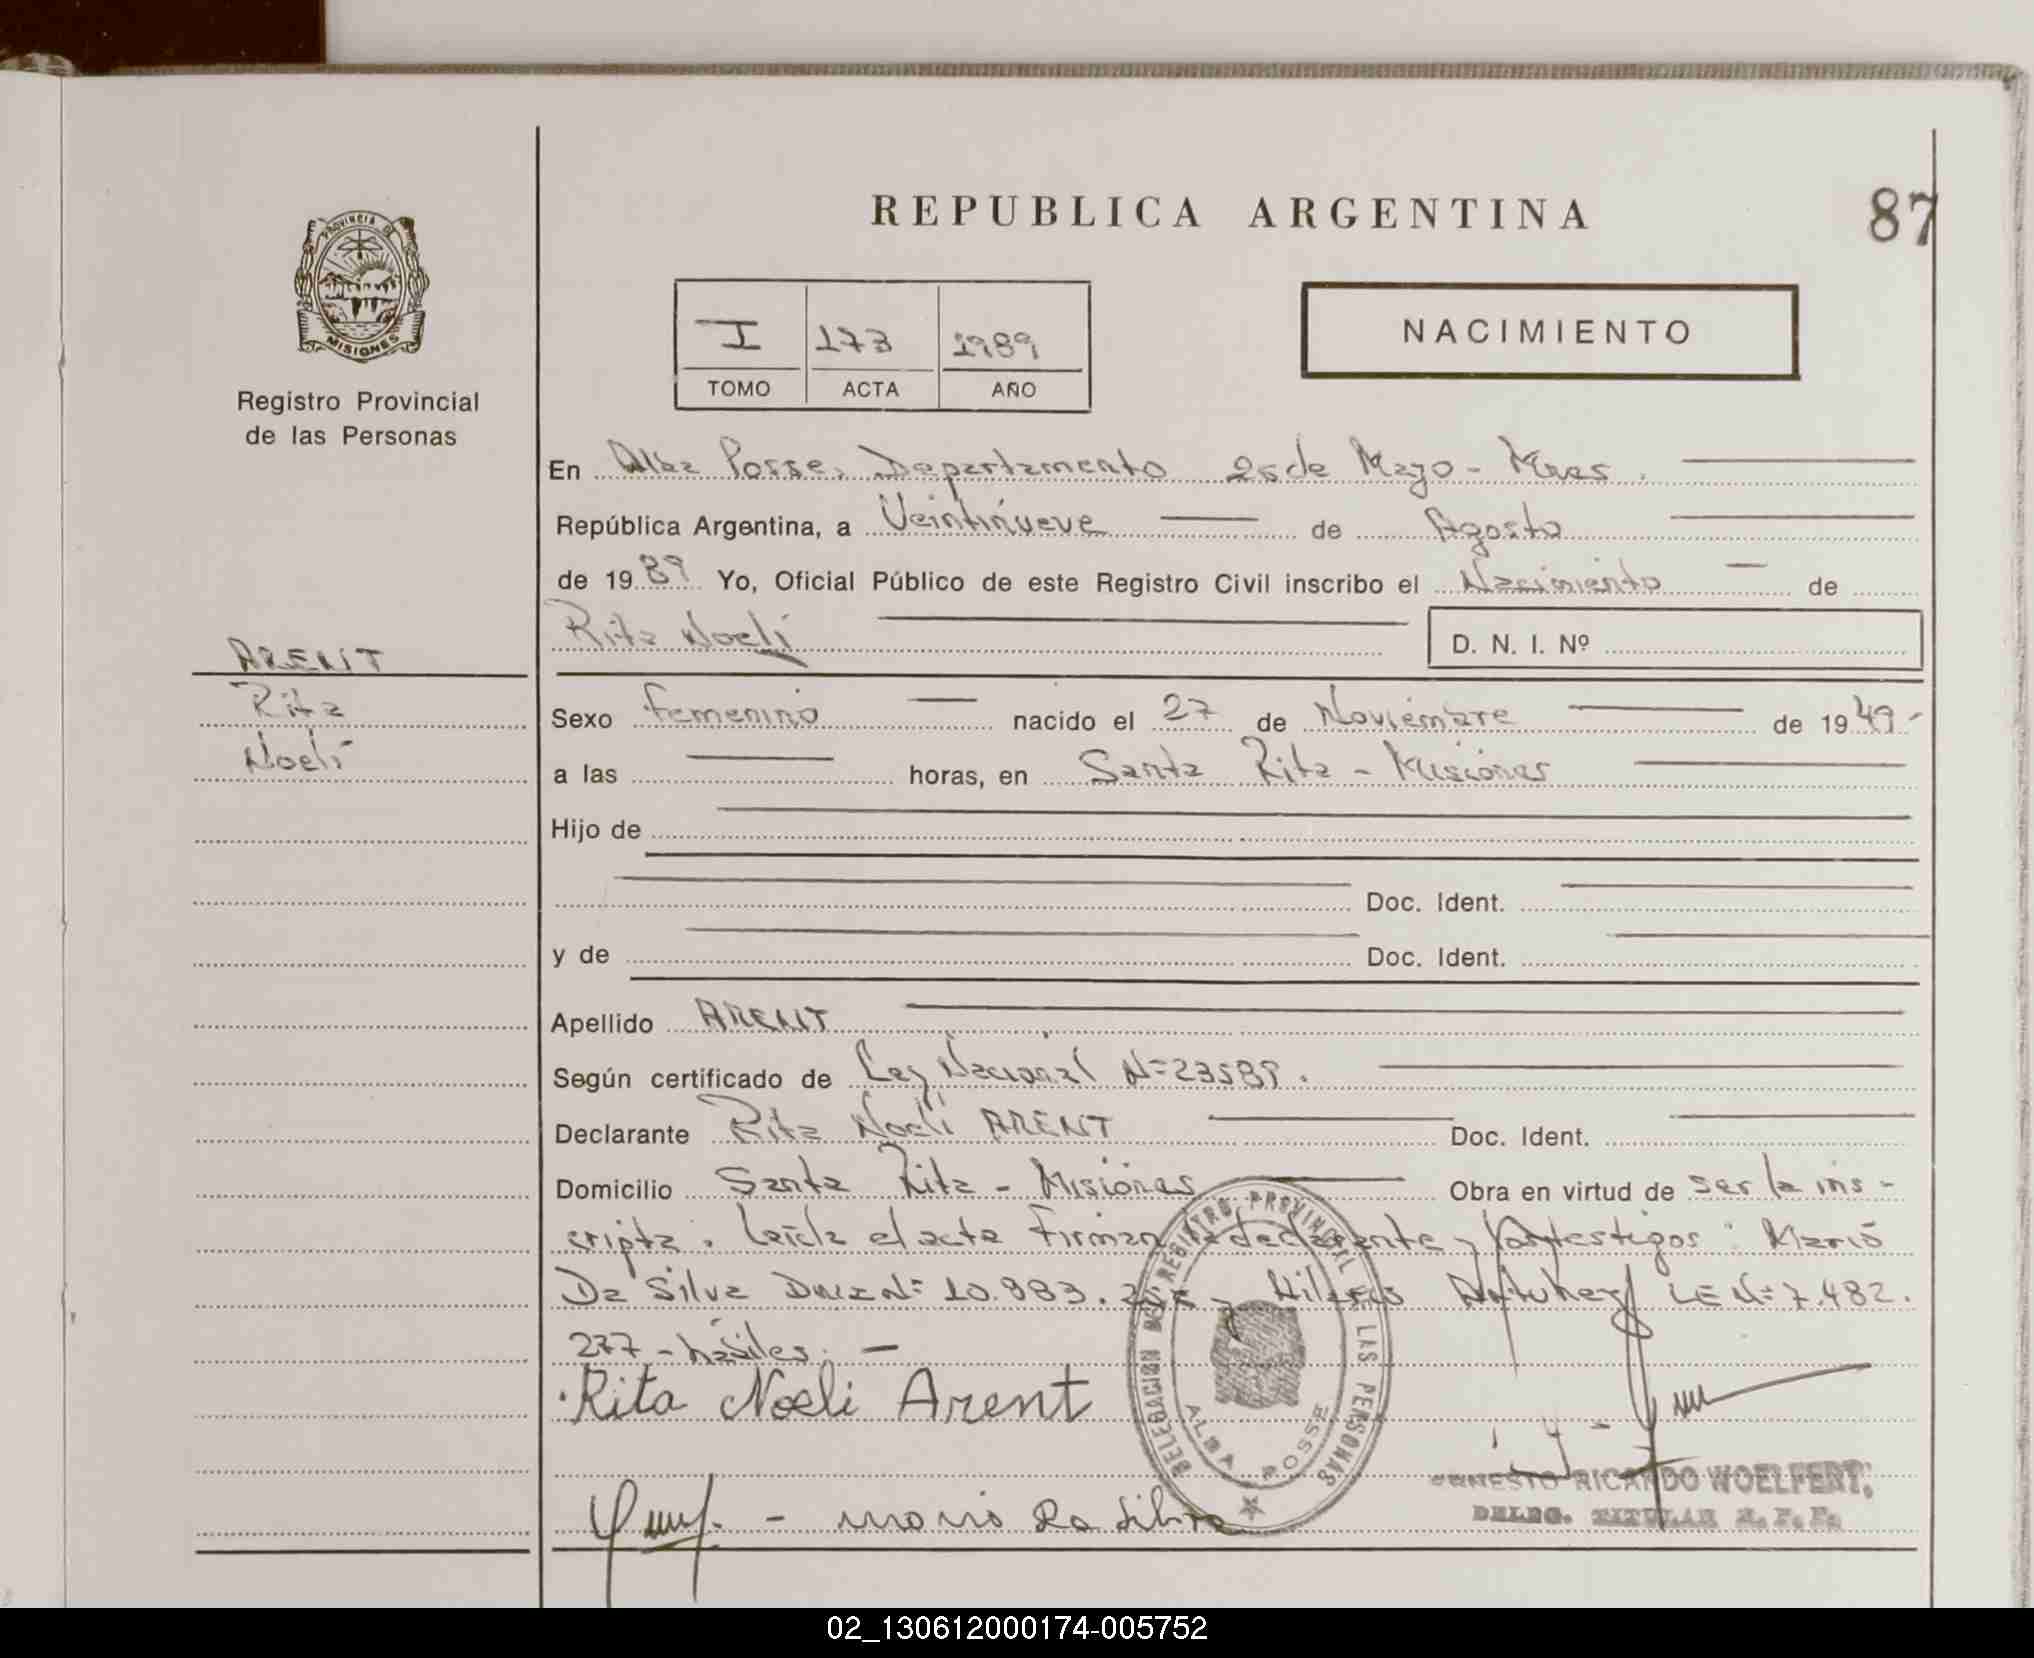 REPUBLICA ARGENTINA
87
PROVINCIA DE
MISIONES
Registro Provincial
de las Personas
I 173 1989
TOMO ACTA AÑO
NACIMIENTO
En Alba Posse, Departamento 25 de Mayo - Mnes.
República Argentina, a Veintinueve de Agosto
de 1989 Yo, Oficial Público de este Registro Civil inscribo el Nacimiento de
Rita Noelí D. N. I. Nº
ARENT
Rita
Noelí
Sexo Femenino nacido el 27 de Noviembre de 1949-
a las horas, en Santa Rita - Misiones
Hijo de
Doc. Ident.
y de Doc. Ident.
Apellido ARENT
Según certificado de Ley Nacional Nº 23589.
Declarante Rita Noeli ARENT Doc. Ident.
Domicilio Santa Rita - Misiones Obra en virtud de ser la ins-
cripta. Leída el acta firman la declarante y testigos: Mario
Da Silva DNI Nº 10.983. y Antuhez LE Nº 7.482.
277 - hábiles. -
Rita Noeli Arent
DELEGACION DEL REGISTRO PROVINCIAL DE LAS PERSONAS
ALBA POSSE
ERNESTO RICARDO WOELFERT
DELEG. TITULAR R. P. P.
- Mario Da Silva
02_130612000174-005752